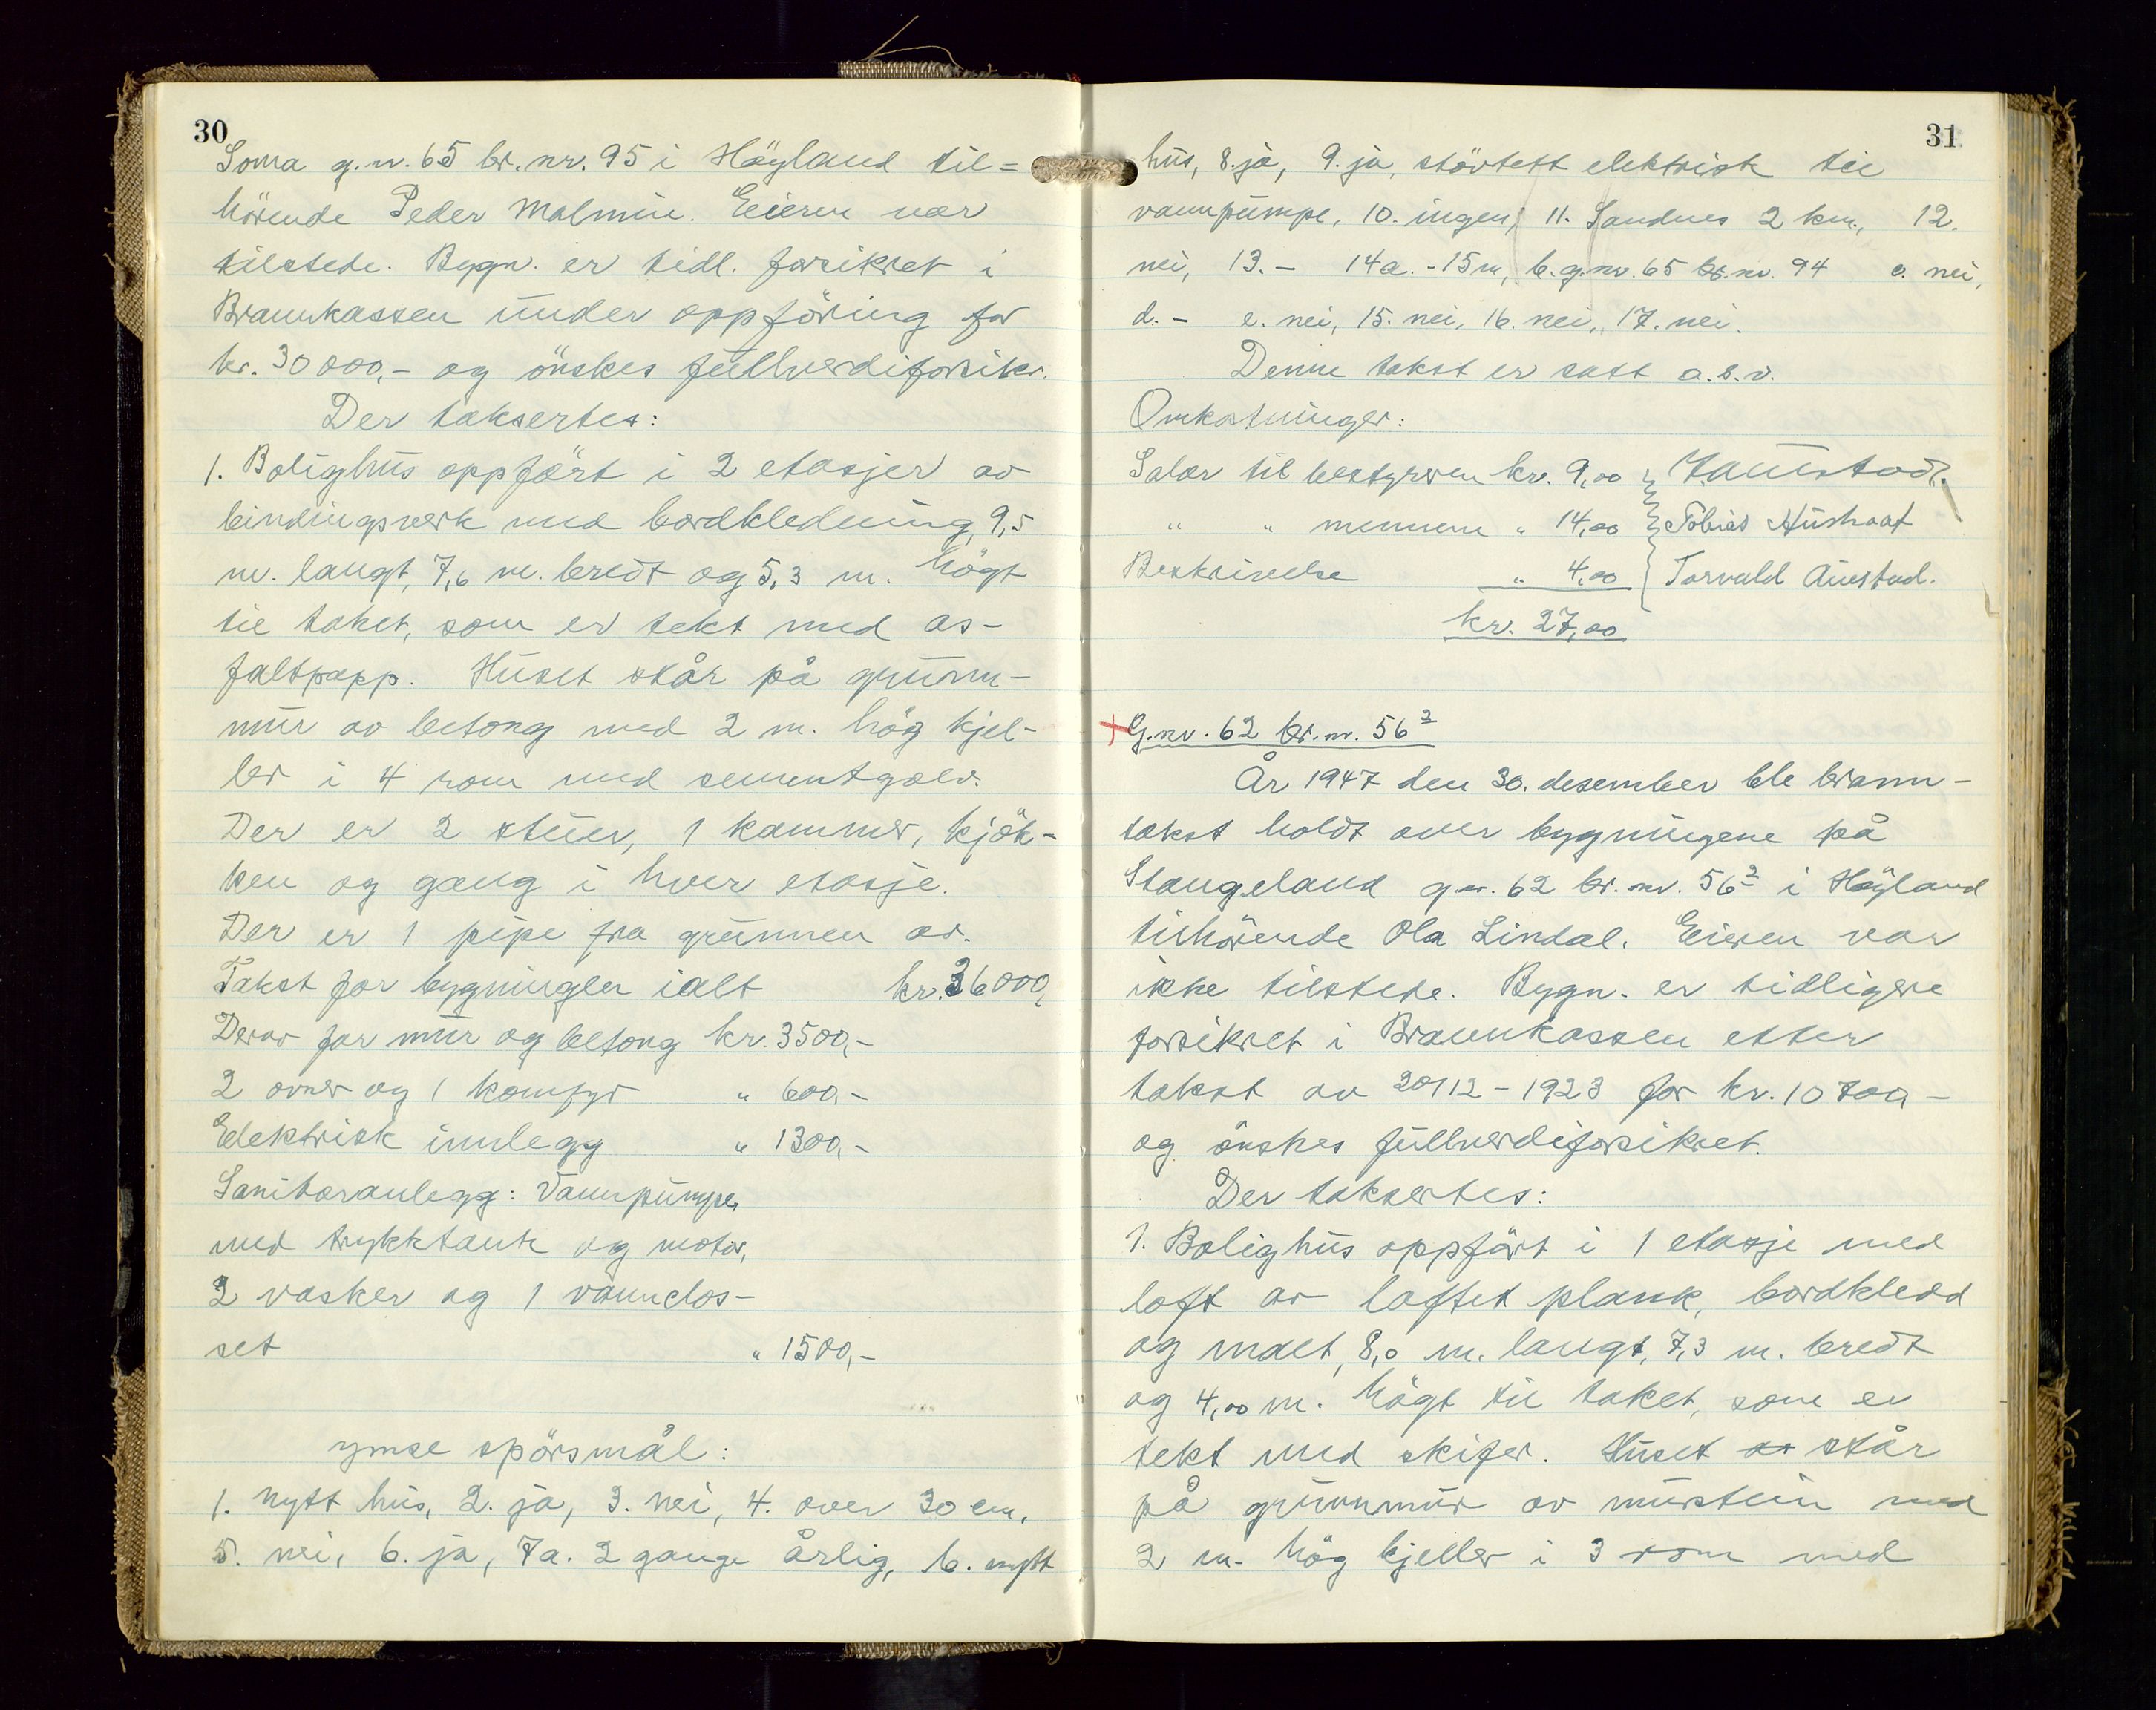 30
Soma g.nr. 65 br.nr. 95 i Höyland til=
hörende Peder Malmin. Eieren var
tilstede. Bygn. er tidl. forsikret i
Brannkassen under oppföring for
kr. 30000,- og önskes fullverdiforsikr.
Der taksertes:
1. Bolighus oppfört i 2 etasjer av
bindingsverk med bordkledning, 9,5
m. langt, 7,6 m. bredt og 5,3 m. högt
til taket, som er tekt med as-
faltpapp. Huset står på grunn-
mur av betong med 2 m. hög kjel-
ler i 4 rom med sementgolv.
Der er 2 stuer, 1 kammer, kjök-
ken og gang i hver etasje.
Der er 1 pipe fra grunnen av.
Takst for bygningen ialt kr. 36000,
Derav for mur og betong kr. 3500,-
2 ovner og 1 komfyr " 600,-
Elektrisk innlegg " 1300,-
Sanitæranlegg: Vannpumpe,
med trykktank og motor,
2 vasker og 1 vannclos-
set " 1500,-
ymse spörsmål:
1. nytt hus, 2. ja, 3. nei, 4. over 30 cm,
5. nei, 6. ja, 7a. 2 gange årlig, b. nytt
31
hus, 8. ja, 9. ja, stövtett elektrisk til
vannpumpe, 10. ingen, 11. Sandnes 2 km., 12.
nei, 13. - 14a. - 15 m, b. g.nr. 65 br.nr. 94 c. nei,
d. - e. nei, 15. nei, 16. nei, 17. nei.
Denne takst er satt o.s.v.
Omkostninger:
Salær til bestyreren kr. 9,00
" " mennene " 14,00 Tobias
Beskrivelse " 4,00 Torvald Austad.
kr. 27,00
+ G.nr. 62 br.nr. 56²
År 1947 den 30. desember ble brann-
takst holdt over bygningene på
Stangeland g.nr. 62 br.nr. 56² i Höyland
tilhörende Ola Lindal. Eieren var
ikke tilstede. Bygn. er tidligere
forsikret i Brannkassen etter
takst av 20/12-1923 for kr. 10700,-
og önskes fullverdiforsikret.
Der taksertes:
1. Bolighus oppfört i 1 etasje med
loft av laftet plank, bordkledd
og malt, 8,0 m. langt, 7,3 m. bredt
og 4,00 m. högt til taket, som er
tekt med skifer. Huset står
på grunnmur av murstein med
2 m. hög kjeller i 3 rom med